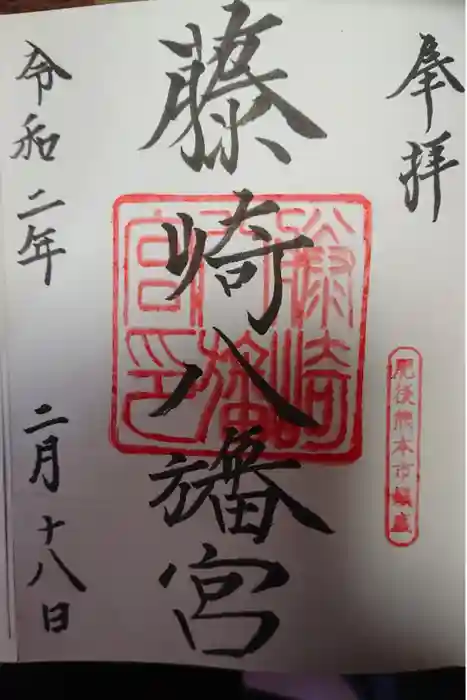 奉拝
肥後熊本市鎮座
藤崎八旛宮
藤崎
八旛
宮印
令和二年 二月十八日